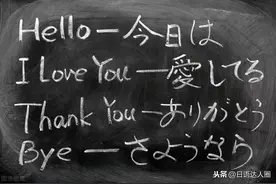 Hello－今日は
I Love You－愛してる
Thank You－ありがとう
Bye－さようなら
头条 @日语达人圈